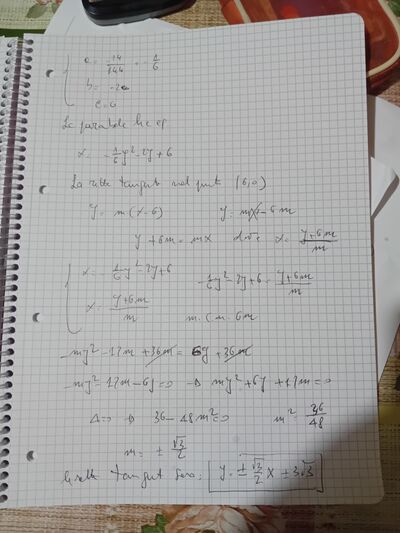 a = -24/144 = -1/6
b = -2
c = 6
La parabola ha eq
x = -1/6 y² - 2y + 6
La retta tangente nel punto (6,0)
y = m(x-6) y = mx - 6m
y + 6m = mx x = (y+6m)/m
x = -1/6 y² - 2y + 6 -1/6 y² - 2y + 6 = (y+6m)/m
x = (y+6m)/m m.c.m. 6m
-my² - 12m + 36m = 6y + 36m
-my² - 12m - 6y = 0 → my² + 6y + 12m = 0
Δ = 0 → 36 - 48m² = 0 m² = 36/48
m = ± √3/2
la retta tangente sarà: y = ± √3/2 x ± 3√3